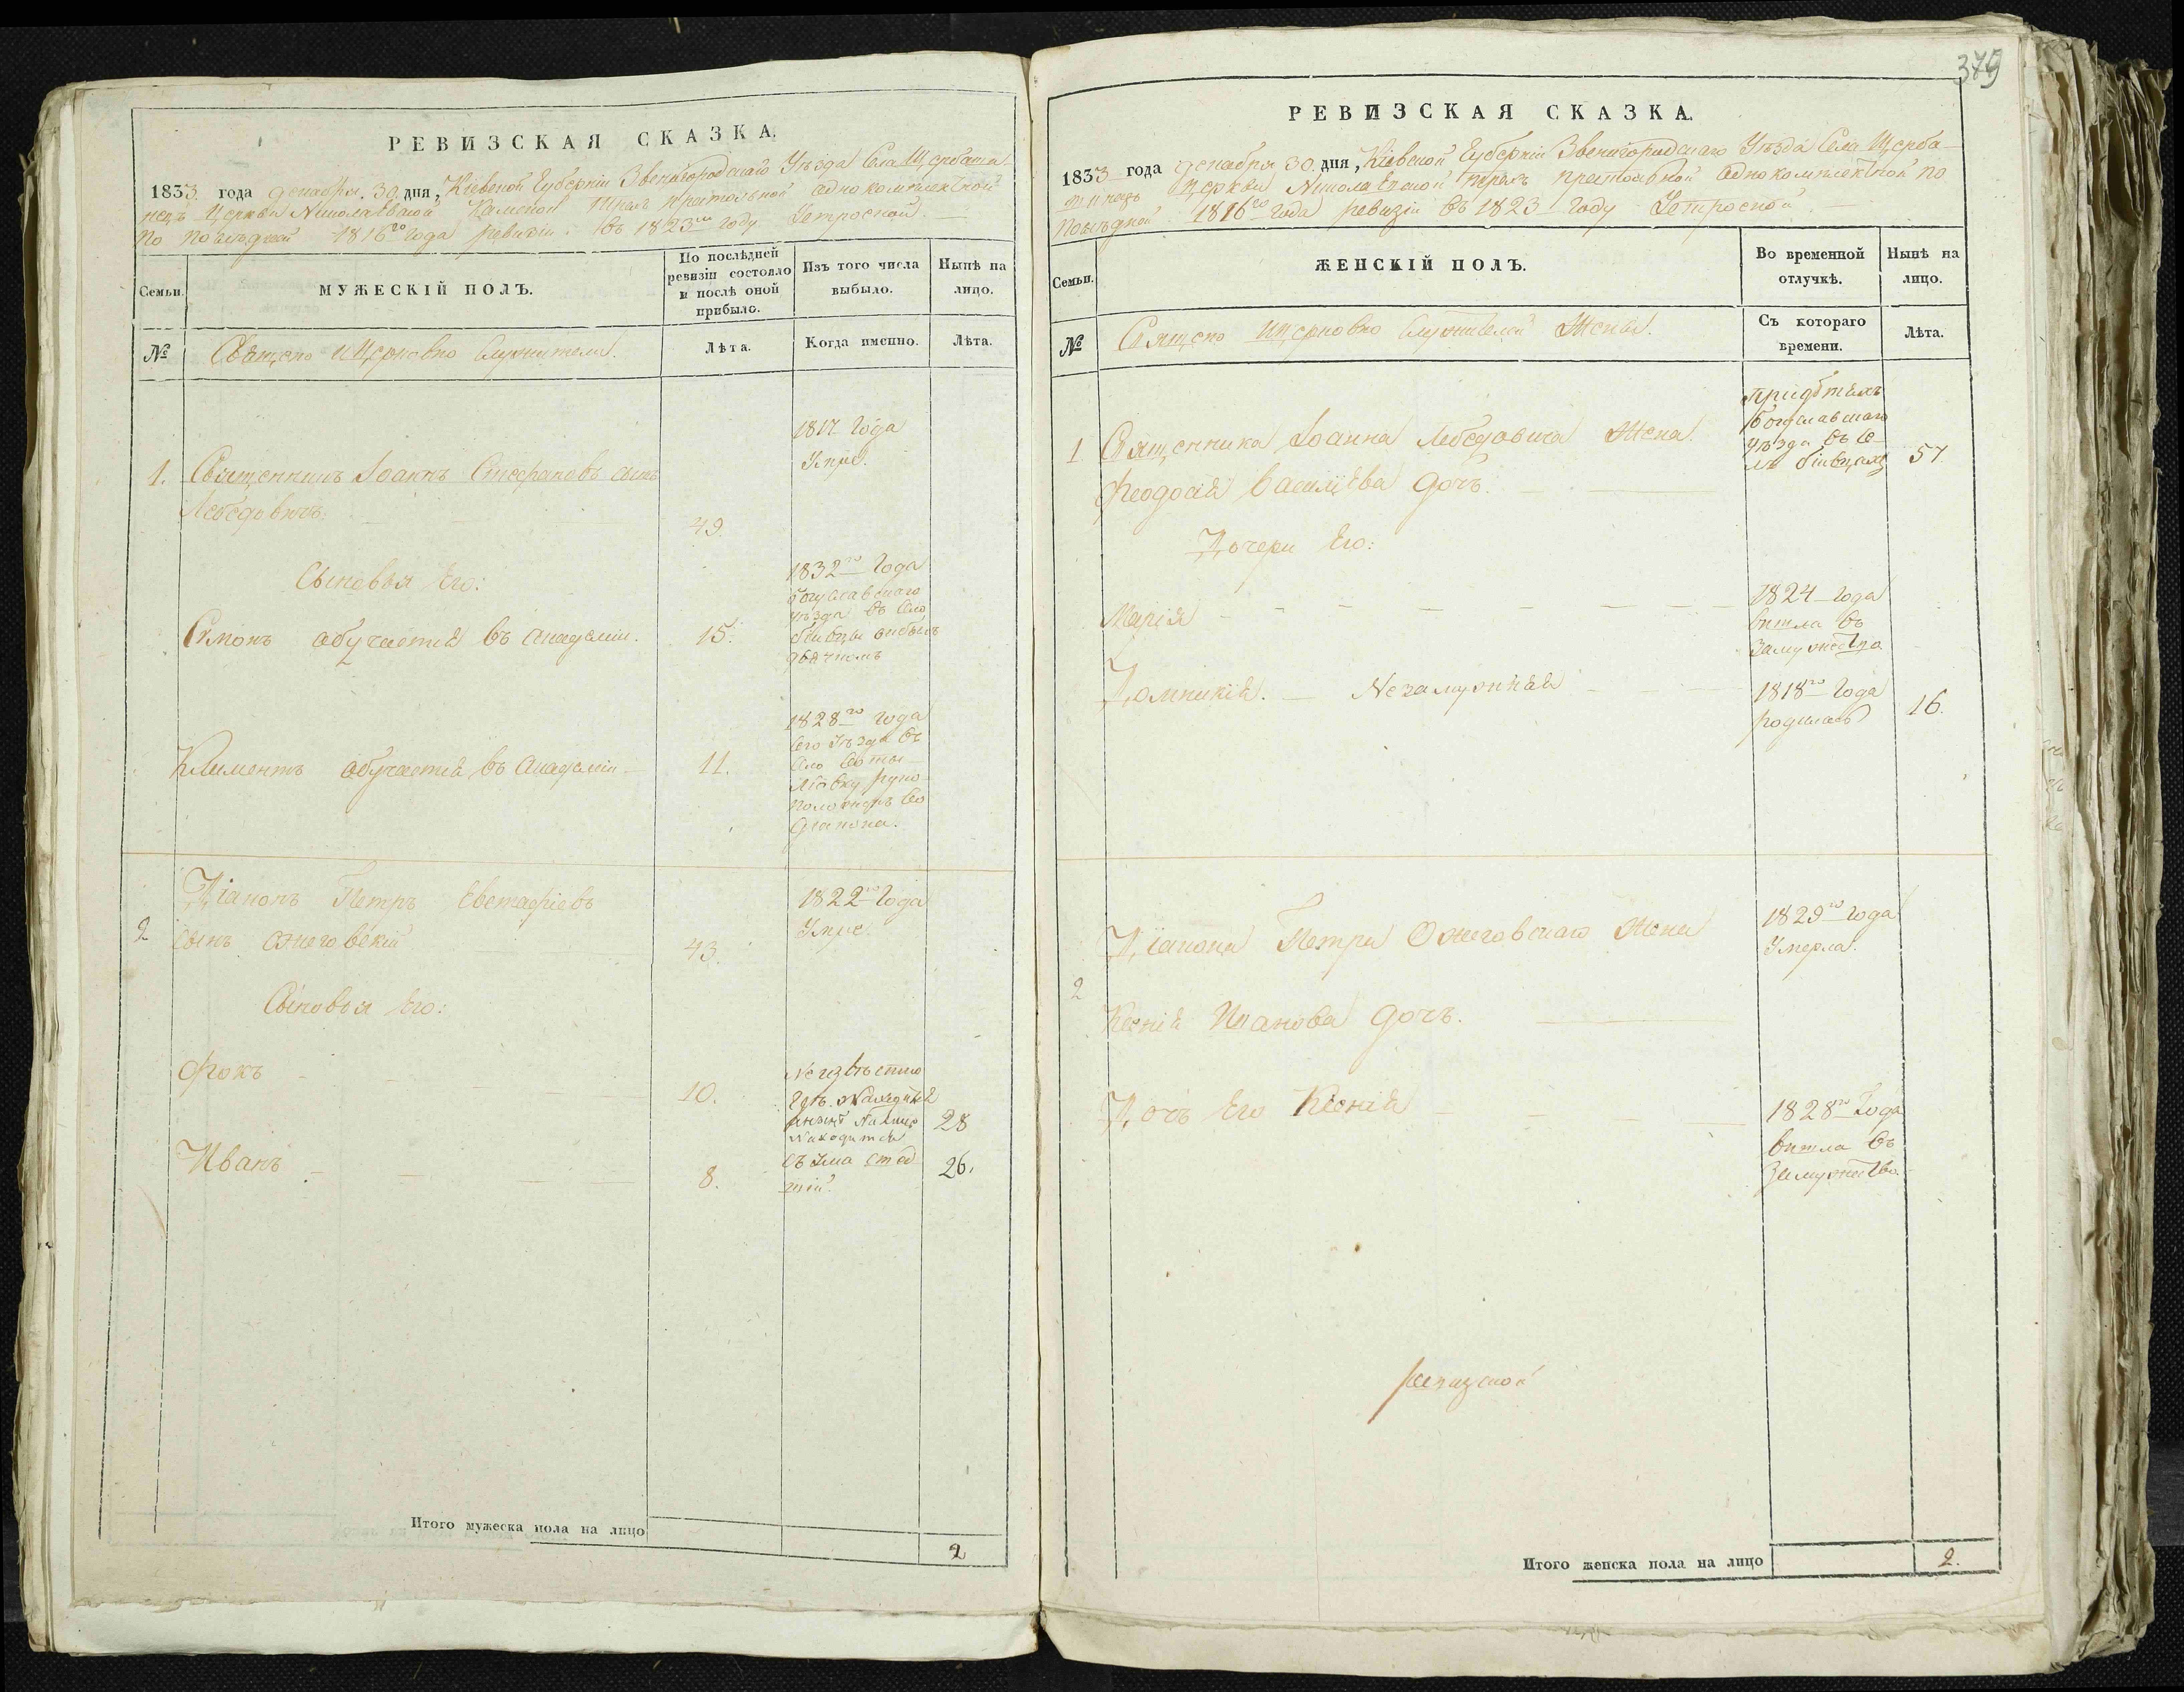 РЕВИЗСКАЯ СКАЗКА.
1833 года декабря 30 дня, Кіевской Губерніи Звенигородскаго Уѣзда Села Щербаши-
нецъ Церкви Николаевской престольной однокомплектной
по послѣдней 1816го года ревизіи въ 1823м году
Семьи.
МУЖЕСКІЙ ПОЛЪ.
По послѣдней
ревизіи состояло
и послѣ оной
прибыло.
Изъ того числа
выбыло.
Нынѣ на
лицо.
№
Священно и Церковно служители.
Лѣта.
Когда именно.
Лѣта.
1817 года
1. Священникъ Іоаннъ Стефановъ сынъ
Умре.
Лебедовичъ.
49.
Сыновья Его:
1832го Года
богуславскаго
уѣзда въ село
Симонъ обучается въ Академіи.
15.
дьячкомъ
1828го года
Его уѣзда въ
село
Климентъ обучается въ Академіи
11.
руко-
положенъ во
діакона.
2
Діаконъ Петръ Евстафіевъ
сынъ Ожеговскій
43.
1822го Года
Умре.
Сыновья Его:
Фокъ
10.
Неизвѣстно
гдѣ
находится
28
Иванъ
8.
26.
Итого мужеска пола на лицо
2
379
РЕВИЗСКАЯ СКАЗКА.
1833 года декабря 30 дня, Кіевской Губерніи Звенигородскаго Уѣзда Села Щерба-
Церкви Николаевской престольной однокомплектной по
послѣдней 1816го года ревизіи въ 1823 году
Семьи.
ЖЕНСКІЙ ПОЛЪ.
Во временной
отлучкѣ.
Нынѣ на
лицо.
№
Священно и церковно служителей Жены.
Съ котораго
времени.
Лѣта.
при дѣтяхъ
богуславскаго
уѣзда въ се-
лѣ
1 Священника Іоанна Лебедовича Жена
57
Феодосія Васильева дочь.
Дочери Его:
Марія
1824 года
вышла въ
замужество
Домникія. Незамужняя
1818го Года
родилась
16.
2
Діакона Петра Ожеговскаго Жена
1829го года
Умерла.
Ксенія Иванова дочь.
Дочь Его Ксенія
1828го Года
вышла въ
замужество.
Итого женска пола на лицо
2.